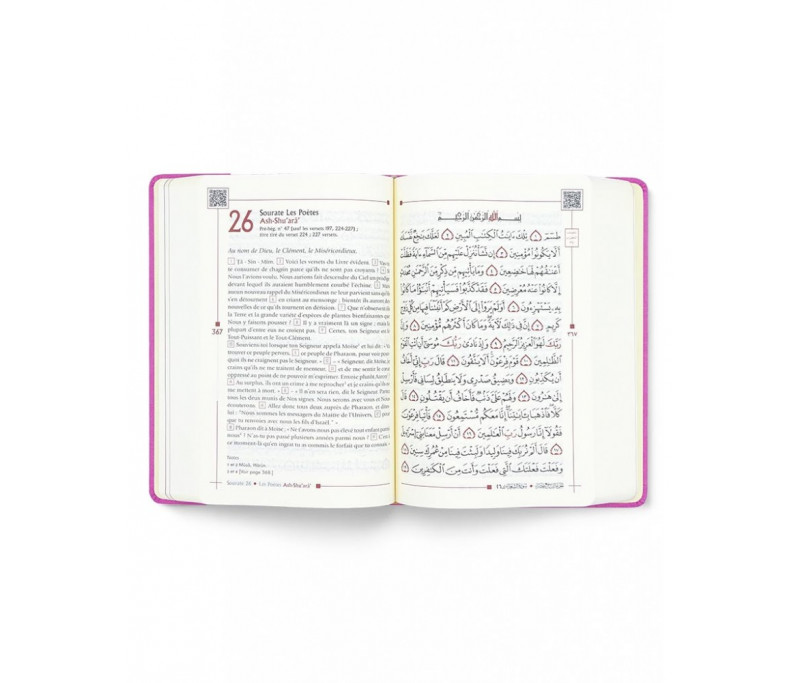 26
Sourate Les Poètes
Ash-Shu'arâ'
Préhég. n° 47 (sauf les versets 197, 224-227) ;
titre tiré du verset 224 ; 227 versets.
Au nom de Dieu, le Clément, le Miséricordieux.
1 Tâ - Sîn - Mîm. 2 Voici les versets du Livre évident. 3
se consumer de chagrin parce qu'ils ne sont pas croyants ! 4
Nous l'avions voulu, Nous aurions fait descendre du Ciel un
devant lequel ils auraient humblement courbé l'échine. 5
aucun nouveau rappel du Miséricordieux ne leur parvient sans qu'
s'en détournent 6 en criant au mensonge ; bientôt ils auront
nouvelles de ce qu'ils tournent en dérision. 7 Que n'observent
la Terre et la grande variété d'espèces de plantes bienfaisantes
Nous y faisons pousser ! 8 Il y a vraiment là un signe ; mais
plupart d'entre eux ne croient pas. 9 Certes, ton Seigneur est
Tout-Puissant et le Tout-Clément.
10 Souviens-toi lorsque ton Seigneur appela Moïse et lui dit : «
trouver ce peuple pervers, 11 ce peuple de Pharaon, pour voir
quoi ils ne craignent pas le Seigneur. » 12 – « Seigneur, dit
crains qu'ils ne me traitent de menteur, 13 et de ce
oppressé au point de ne pouvoir m'exprimer. Envoie plutôt Aaron
14 Au surplus, ils ont un crime à me reprocher et je crains qu'ils
me mettent à mort. » 15 – « Il n'en sera rien, dit le Seigneur.
tous les deux munis de Nos signes. Nous serons avec vous et
écouterons. 16 Allez donc tous deux auprès de Pharaon, et
lui : "Nous sommes les messagers du Maître de l'Univers, 17
que tu renvoies avec nous les fils d'Israël." »
18 Pharaon dit à Moïse : « Ne t'avons-nous pas élevé tout enfant
nous ? N'as-tu pas passé plusieurs années parmi nous ? 19
ce moment-là qu'en ingrat tu as commis le forfait que tu
367
Notes
Sourate 26 • Les Poètes Ash-Shu'arâ'
بِسْمِ اللَّهِ الرَّحْمَٰنِ الرَّحِيمِ
طسٓمٓ ١ تِلْكَ ءَايَٰتُ ٱلْكِتَٰبِ ٱلْمُبِينِ ٢ لَعَلَّكَ بَٰخِعٌ نَّفْسَكَ
أَلَّا يَكُونُوا۟ مُؤْمِنِينَ ٣ إِن نَّشَأْ نُنَزِّلْ عَلَيْهِم مِّنَ ٱلسَّمَآءِ ءَايَةً فَظَلَّتْ
أَعْنَٰقُهُمْ لَهَا خَٰضِعِينَ ٤ وَمَا يَأْتِيهِم مِّن ذِكْرٍ مِّنَ ٱلرَّحْمَٰنِ مُحْدَثٍ
إِلَّا كَانُوا۟ عَنْهُ مُعْرِضِينَ ٥ فَقَدْ كَذَّبُوا۟ فَسَيَأْتِيهِمْ أَنۢبَٰٓؤُا۟ مَا كَانُوا۟
بِهِۦ يَسْتَهْزِءُونَ ٦ أَوَلَمْ يَرَوْا۟ إِلَى ٱلْأَرْضِ كَمْ أَنۢبَتْنَا فِيهَا مِن كُلِّ زَوْجٍ
كَرِيمٍ ٧ إِنَّ فِى ذَٰلِكَ لَءَايَةً وَمَا كَانَ أَكْثَرُهُم مُّؤْمِنِينَ ٨ وَإِنَّ
رَبَّكَ لَهُوَ ٱلْعَزِيزُ ٱلرَّحِيمُ ٩ وَإِذْ نَادَىٰ رَبُّكَ مُوسَىٰٓ أَنِ ٱئْتِ ٱلْقَوْمَ
ٱلظَّٰلِمِينَ ١٠ قَوْمَ فِرْعَوْنَ أَلَا يَتَّقُونَ ١١ قَالَ رَبِّ إِنِّىٓ أَخَافُ
أَن يُكَذِّبُونِ ١٢ وَيَضِيقُ صَدْرِى وَلَا يَنطَلِقُ لِسَانِى فَأَرْسِلْ
إِلَىٰ هَٰرُونَ ١٣ وَلَهُمْ عَلَىَّ ذَنۢبٌ فَأَخَافُ أَن يَقْتُلُونِ ١٤ قَالَ
كَلَّا فَٱذْهَبَا بِـَٔايَٰتِنَآ إِنَّا مَعَكُم مُّسْتَمِعُونَ ١٥ فَأْتِيَا فِرْعَوْنَ
فَقُولَآ إِنَّا رَسُولُ رَبِّ ٱلْعَٰلَمِينَ ١٦ أَنْ أَرْسِلْ مَعَنَا بَنِىٓ إِسْرَٰٓءِيلَ
١٧ قَالَ أَلَمْ نُرَبِّكَ فِينَا وَلِيدًا وَلَبِثْتَ فِينَا مِنْ عُمُرِكَ سِنِينَ ١٨
وَفَعَلْتَ فَعْلَتَكَ ٱلَّتِى فَعَلْتَ وَأَنتَ مِنَ ٱلْكَٰفِرِينَ ١٩
٣٦٧